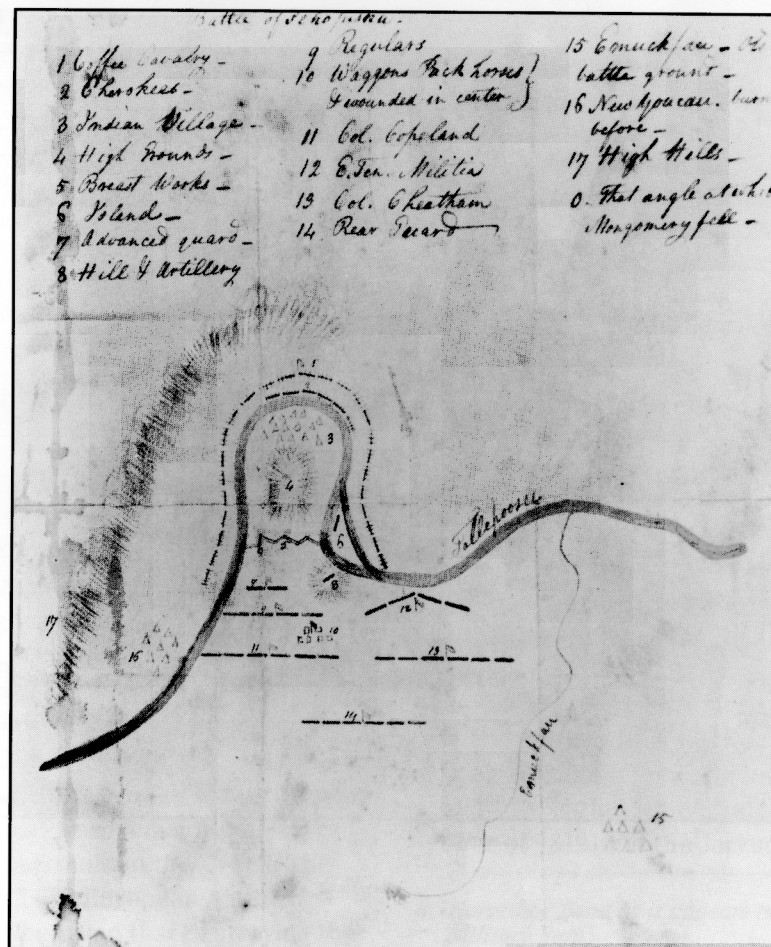 Battle of Tehopiska.
1 Coffee Cavalry -
2 Cherokees -
3 Indian Village -
4 High Grounds -
5 Breast Works -
6 Island -
7 Advanced guard -
8 Hill & Artillery
9 Regulars
10 Waggons Pack horses
& wounded in center
11 Col. Copeland
12 E. Ten. Militia
13 Col. Cheatham
14 Rear Guard
15 Emuckfau - Old
battle ground -
16 New Youcau. burn
before -
17 High Hills -
0. That angle at which
Montgomery fell -
1
2
3
4
5
6
Tallepoosu
7
8
9
10
11
12
13
14
15
16
17
Emuckfau